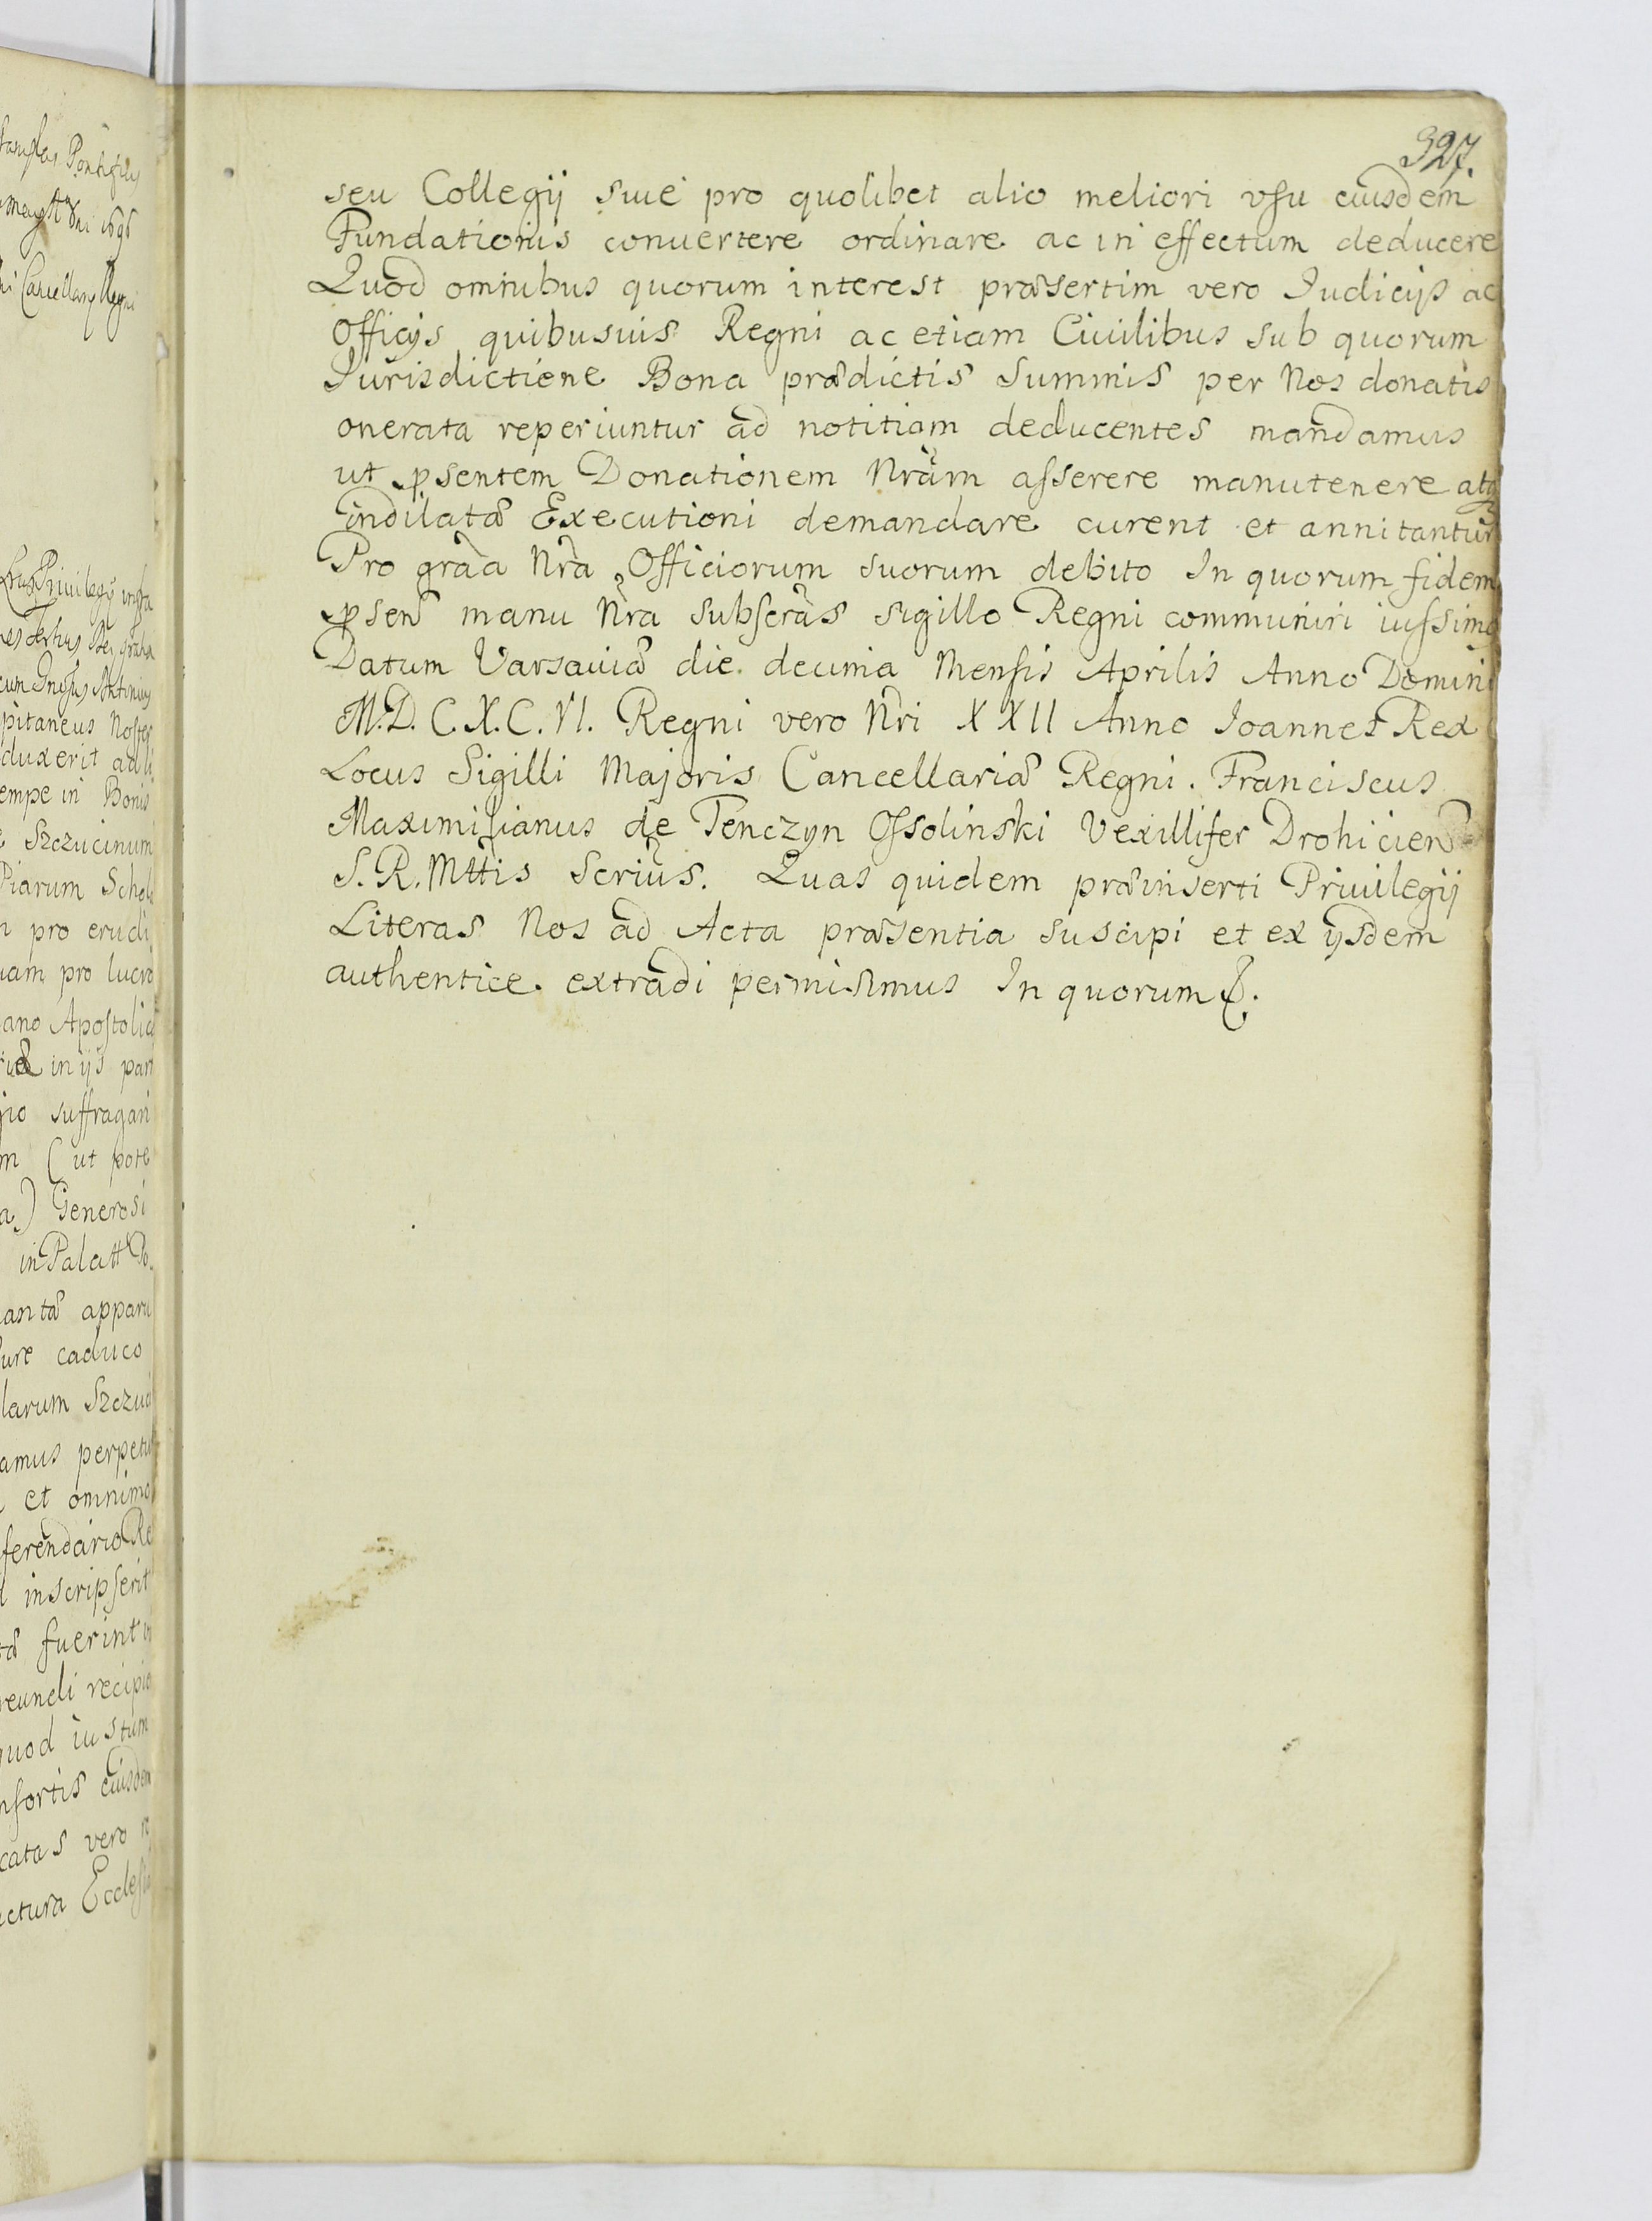 327.
seu Collegij siue pro quolibet alio meliori vsu eiusdem
Fundationis conuertere ordinare ac in effectum deducere
Quod omnibus quorum interest præsertim vero Iudicijs ac
Officijs quibusuis Regni ac etiam Ciuilibus sub quorum
Iurisdictione Bona prædictis Summis per Nos donatis
onerata reperiuntur ad notitiam deducentes mandamus
ut p̃sentem Donationem Nr̃am asserere manutenere atq3
indilatæ Executioni demandare curent et annitantur
Pro grãa Nr̃a Officiorum suorum debito In quorum fidem
p̃sen̄ manu Nr̃a subscr̃as sigillo Regni communiri iussimus
Datum Varsauiæ die decima Mensis Aprilis Anno Domini
M.D.C.X.C.VI. Regni vero Nr̃i XXII Anno Ioannes Rex
Locus Sigilli Majoris Cancellariæ Regni. Franciscus
Maximilianus de Tenczyn Ossolinski Vexillifer Drohicien̄
S.R.Mttis Secrius. Quas quidem præinserti Priuilegij
Literas Nos ad Acta præsentia suscipi et ex ijsdem
authentice extradi permisimus In quorum &.
Pontificis
Cancellarij Regni
Priuilegij
pitaneus Noster
duxerit
empe in Bonis
Szczucinum
Piarum Schol
pro erudi
uam pro lucro
ano Apostolicæ
in ijs par
suffragari
m (ut pote
a) Generosi
in Palatt Po
antæ apparu
ure caduco
larum Szczuci
amus perpetu
et omnimo
ferendario Re
inscripserit
tæ fuerint in
eundi recipie
quod iustum
nsortis eiusdem
catas vero
ctura Ecclesiæ